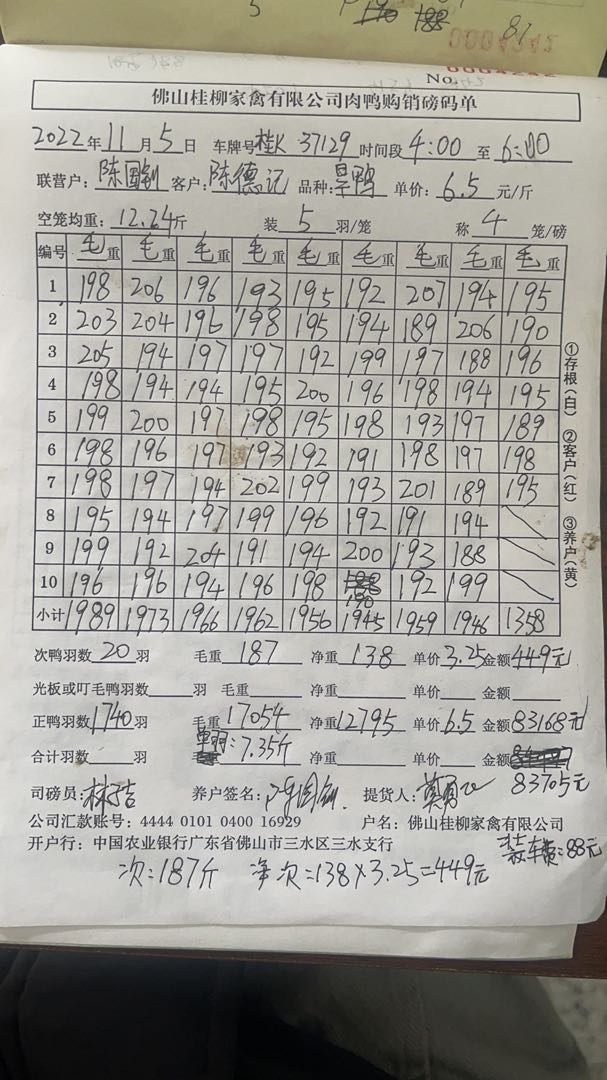 5 190 188
81
0004242
No. 0004242
佛山桂柳家禽有限公司肉鸭购销磅码单
2022年11月5日 车牌号桂K 37129 时间段4:00至6:00
联营户:陈国钊 客户:陈德记 品种:旱鸭 单价:6.5元/斤
空笼均重:12.24斤 装5羽/笼 称4笼/磅
编号 毛重 毛重 毛重 毛重 毛重 毛重 毛重 毛重 毛重
1 198 206 196 193 195 192 207 194 195
2 203 204 196 198 195 194 189 206 190
3 205 194 197 197 192 199 197 188 196
4 198 194 194 195 200 196 198 194 195
5 199 200 197 198 195 198 193 197 189
6 198 196 197 193 192 191 198 197 198
7 198 197 194 202 199 193 201 189 195
8 195 194 197 199 196 192 191 194
9 199 192 204 191 194 200 193 188
10 196 196 194 196 198 190 192 199
小计 1989 1973 1966 1962 1956 1945 1959 1946 1358
①存根(白) ②客户(红) ③养户(黄)
次鸭羽数20羽 毛重187 净重138 单价3.25金额449元
光板或叮毛鸭羽数 羽 毛重 净重 单价 金额
正鸭羽数1740羽 毛重17054 净重12795 单价6.5 金额83168元
合计羽数 羽 单羽:7.35斤 净重 单价 金额
83705元
司磅员: 养户签名:陈国钊 提货人:
公司汇款账号:4444 0101 0400 16929 户名:佛山桂柳家禽有限公司
开户行:中国农业银行广东省佛山市三水区三水支行
装车费:88元
次:187斤 净次:138×3.25=449元